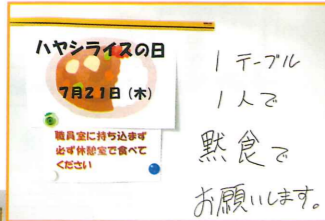 ハヤシライスの日
7月21日（木）
職員室に持ち込まず
必ず休憩室で食べて
ください
1テーブル
1人で
黙食で
お願いします。